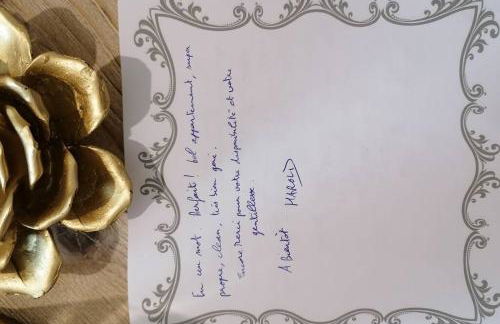 En un mot Parfait! bel appartement, super
propre, clean, très bien géré.
Encore merci pour votre disponibilité et votre
gentillesse.
A bientôt HAROLD